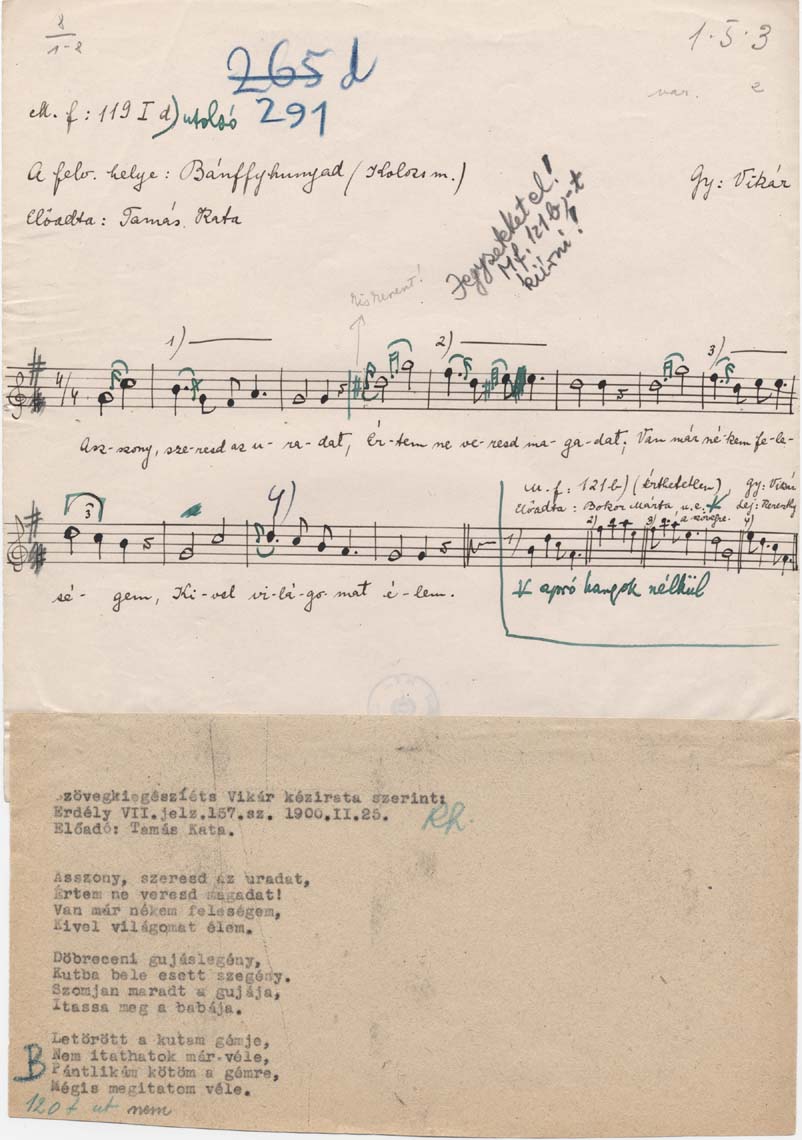 2
1-2
1·5·3
265 d
291
var. e
M. f: 119 I d) utolsó
A felv. helye: Bánffyhunyad (Kolozs m.)
Gy: Vikár
Előadta: Tamás Kata
Jegyzeteket el!
M.f. 121 b)-t
kiírni!
1)
2)
3)
4/4
Asz-szony, sze-resd az u-ra-dat, Ér-tem ne ve-resd ma-ga-dat; Van már né-kem fe-le-
M. f: 121 b) (érthetetlen), Gy: Vikár
Előadta: Bokor Márta u.e.
3
4)
1)
2)
3)
4)
sé-gem, Ki-vel vi-lá-go-mat é-lem.
apró hangok nélkül
Szövegkiegészíéts Vikár kézirata szerint:
Erdély VII.jelz.157.sz. 1900.II.25.
Előadó: Tamás Kata.
Rh.
Asszony, szeresd az uradat,
Értem ne veresd magadat!
Van már nékem feleségem,
Kivel világomat élem.
Döbreceni gujáslegény,
Kutba bele esett szegény.
Szomjan maradt a gujája,
Itassa meg a babája.
Letörött a kutam gémje,
Nem itathatok már véle,
B
Pántlikám kötöm a gémre,
Mégis megitatom véle.
120 f ut nem